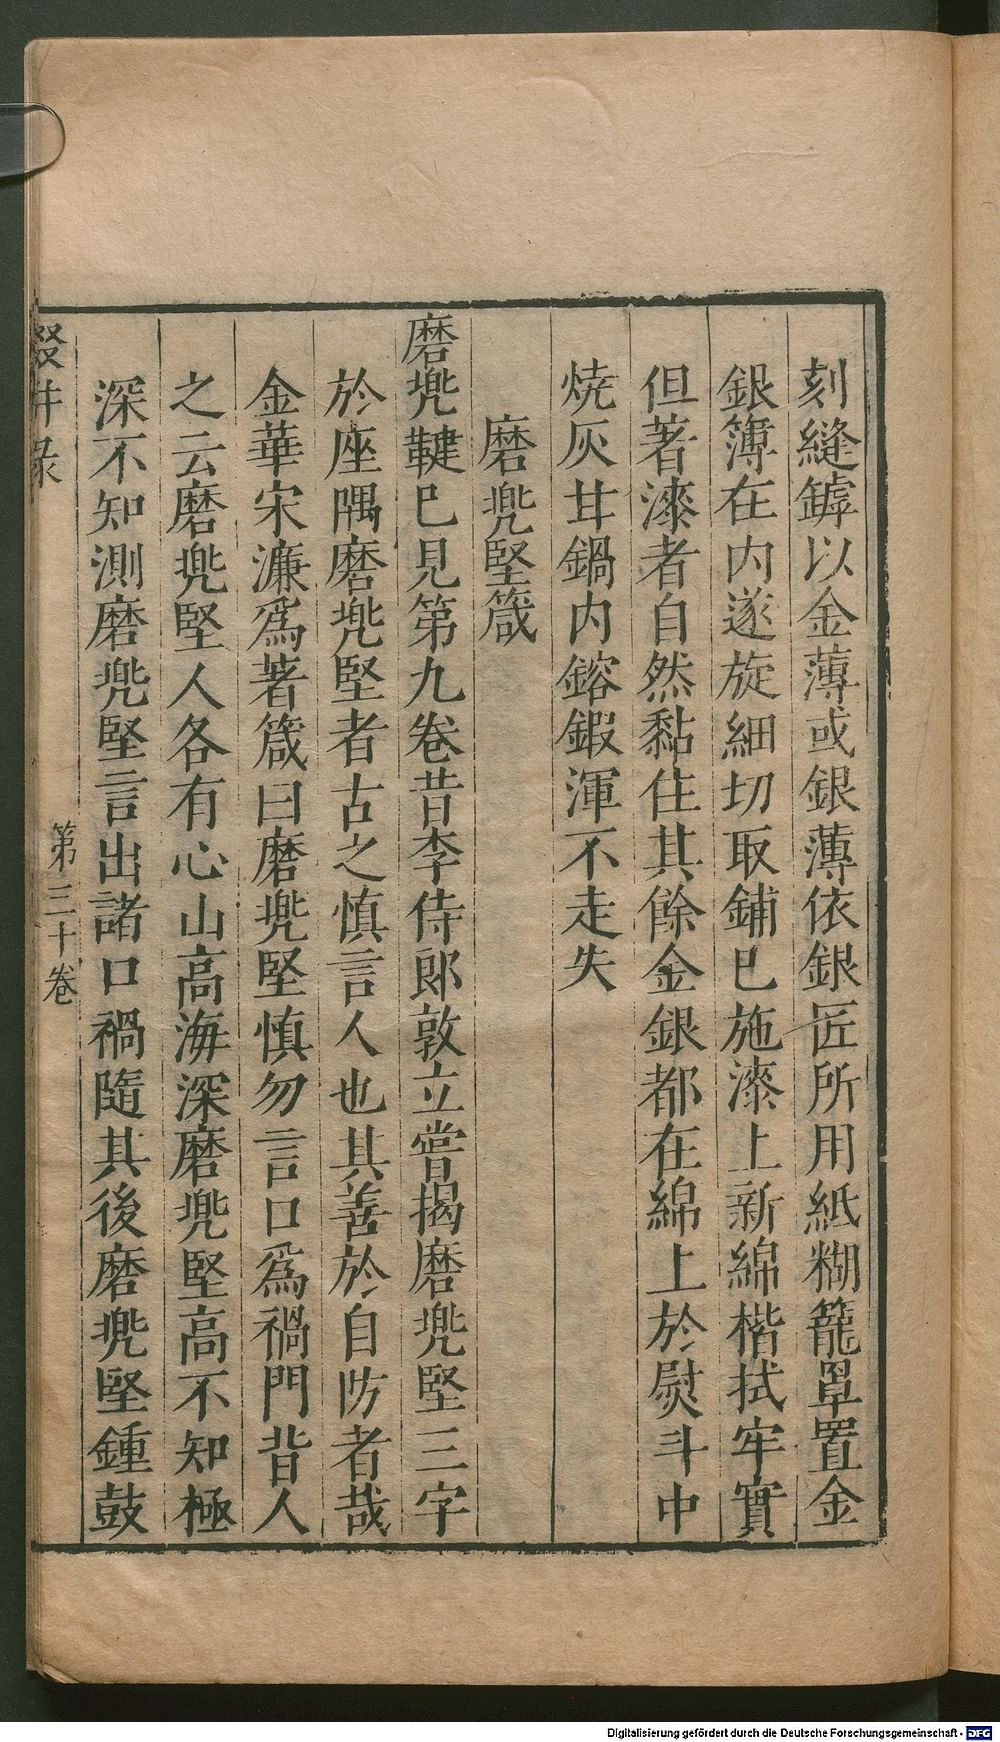 刻縫鏬以金薄或銀薄依銀匠所用紙糊籠罩置金
銀簿在内遂旋細切取鋪已施漆上新綿楷拭牢實
但著漆者自然黏住其餘金銀都在綿上於熨斗中
燒灰甘鍋内鎔鍜渾不走失
磨兠堅箴
磨兠鞬巳見第九卷昔李侍郎敦立嘗揭磨兠堅三字
於座隅磨兠堅者古之慎言人也其善於自防者哉
金華宋濂爲著箴曰磨兠堅慎勿言口爲禍門背人
之云磨兠堅人各有心山高海深磨兠堅高不知極
深不知測磨兠堅言出諸口禍隨其後磨兠堅鍾鼓
輟畊录
第三十卷
Digitalisierung gefördert durch die Deutsche Forschungsgemeinschaft - DFG